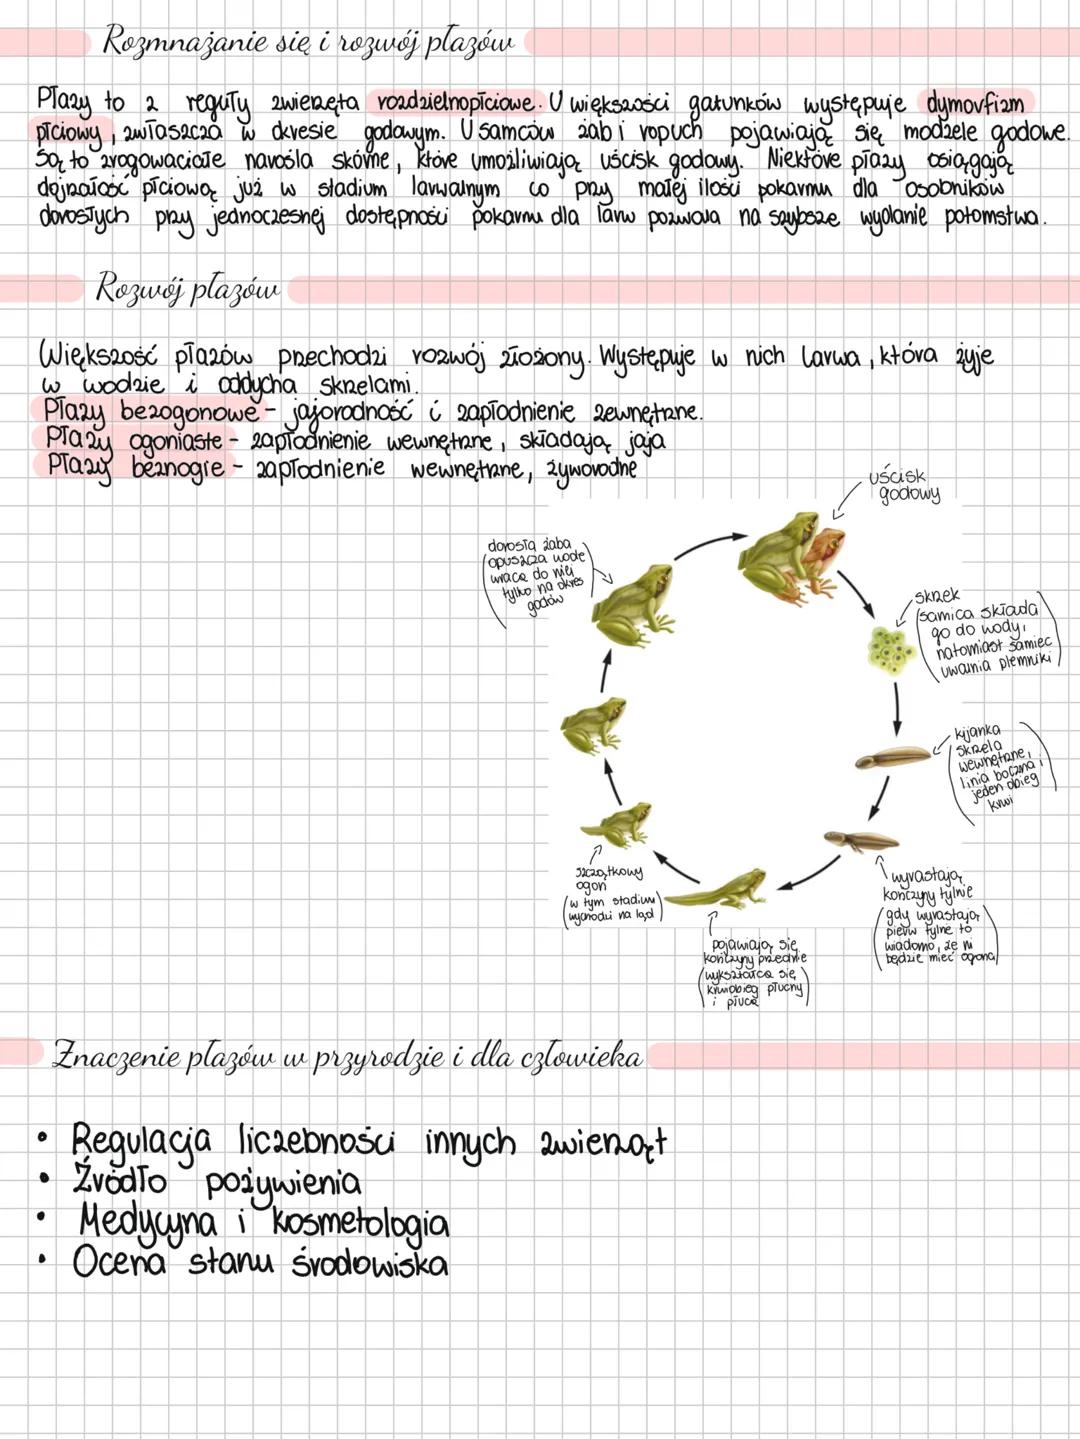 Rozmnażanie się i rozwój płazów
Płazy to z reguły zwierzęta rozdzielnopłciowe. U większości gatunków występuje dymorfizm
płciowy, zwłaszcza w okresie godowym. U samców żab i ropuch pojawiają się modzele godowe.
Są to zrogowaciałe narośla skórne, które umożliwiają uścisk godowy. Niektóre płazy osiągają
dojrzałość płciową już w stadium larwalnym co przy małej ilości pokarmu dla osobników
dorosłych przy jednoczesnej dostępności pokarmu dla larw pozwala na szybsze wydanie potomstwa.
Rozwój płazów
Większość płazów przechodzi rozwój złożony. Występuje w nich larwa, która żyje
w wodzie i oddycha skrzelami.
Płazy bezogonowe - jajorodność i zapłodnienie zewnętrzne.
Płazy ogoniaste - zapłodnienie wewnętrzne, składają jaja
Płazy beznogie - zapłodnienie wewnętrzne, żyworodne
uścisk
godowy
dorosła żaba
opuszcza wodę
wraca do niej
tylko na okres
godów
skrzek
samica składa
go do wody,
natomiast samiec
uwalnia plemniki
kijanka
skrzela
wewnętrzne,
linia boczna i
jeden obieg
krwi
wyrastają
kończyny tylnie
gdy wyrastają
pierw tylne to
wiadomo, że ni
będzie mieć ogona
pojawiają się
kończyny przednie
wykształca się
krwiobieg płucny
i płuca
szczątkowy
ogon
w tym stadium
wychodzi na ląd
Znaczenie płazów w przyrodzie i dla człowieka
• Regulacja liczebności innych zwierząt
• Źródło pożywienia
• Medycyna i kosmetologia
• Ocena stanu środowiska